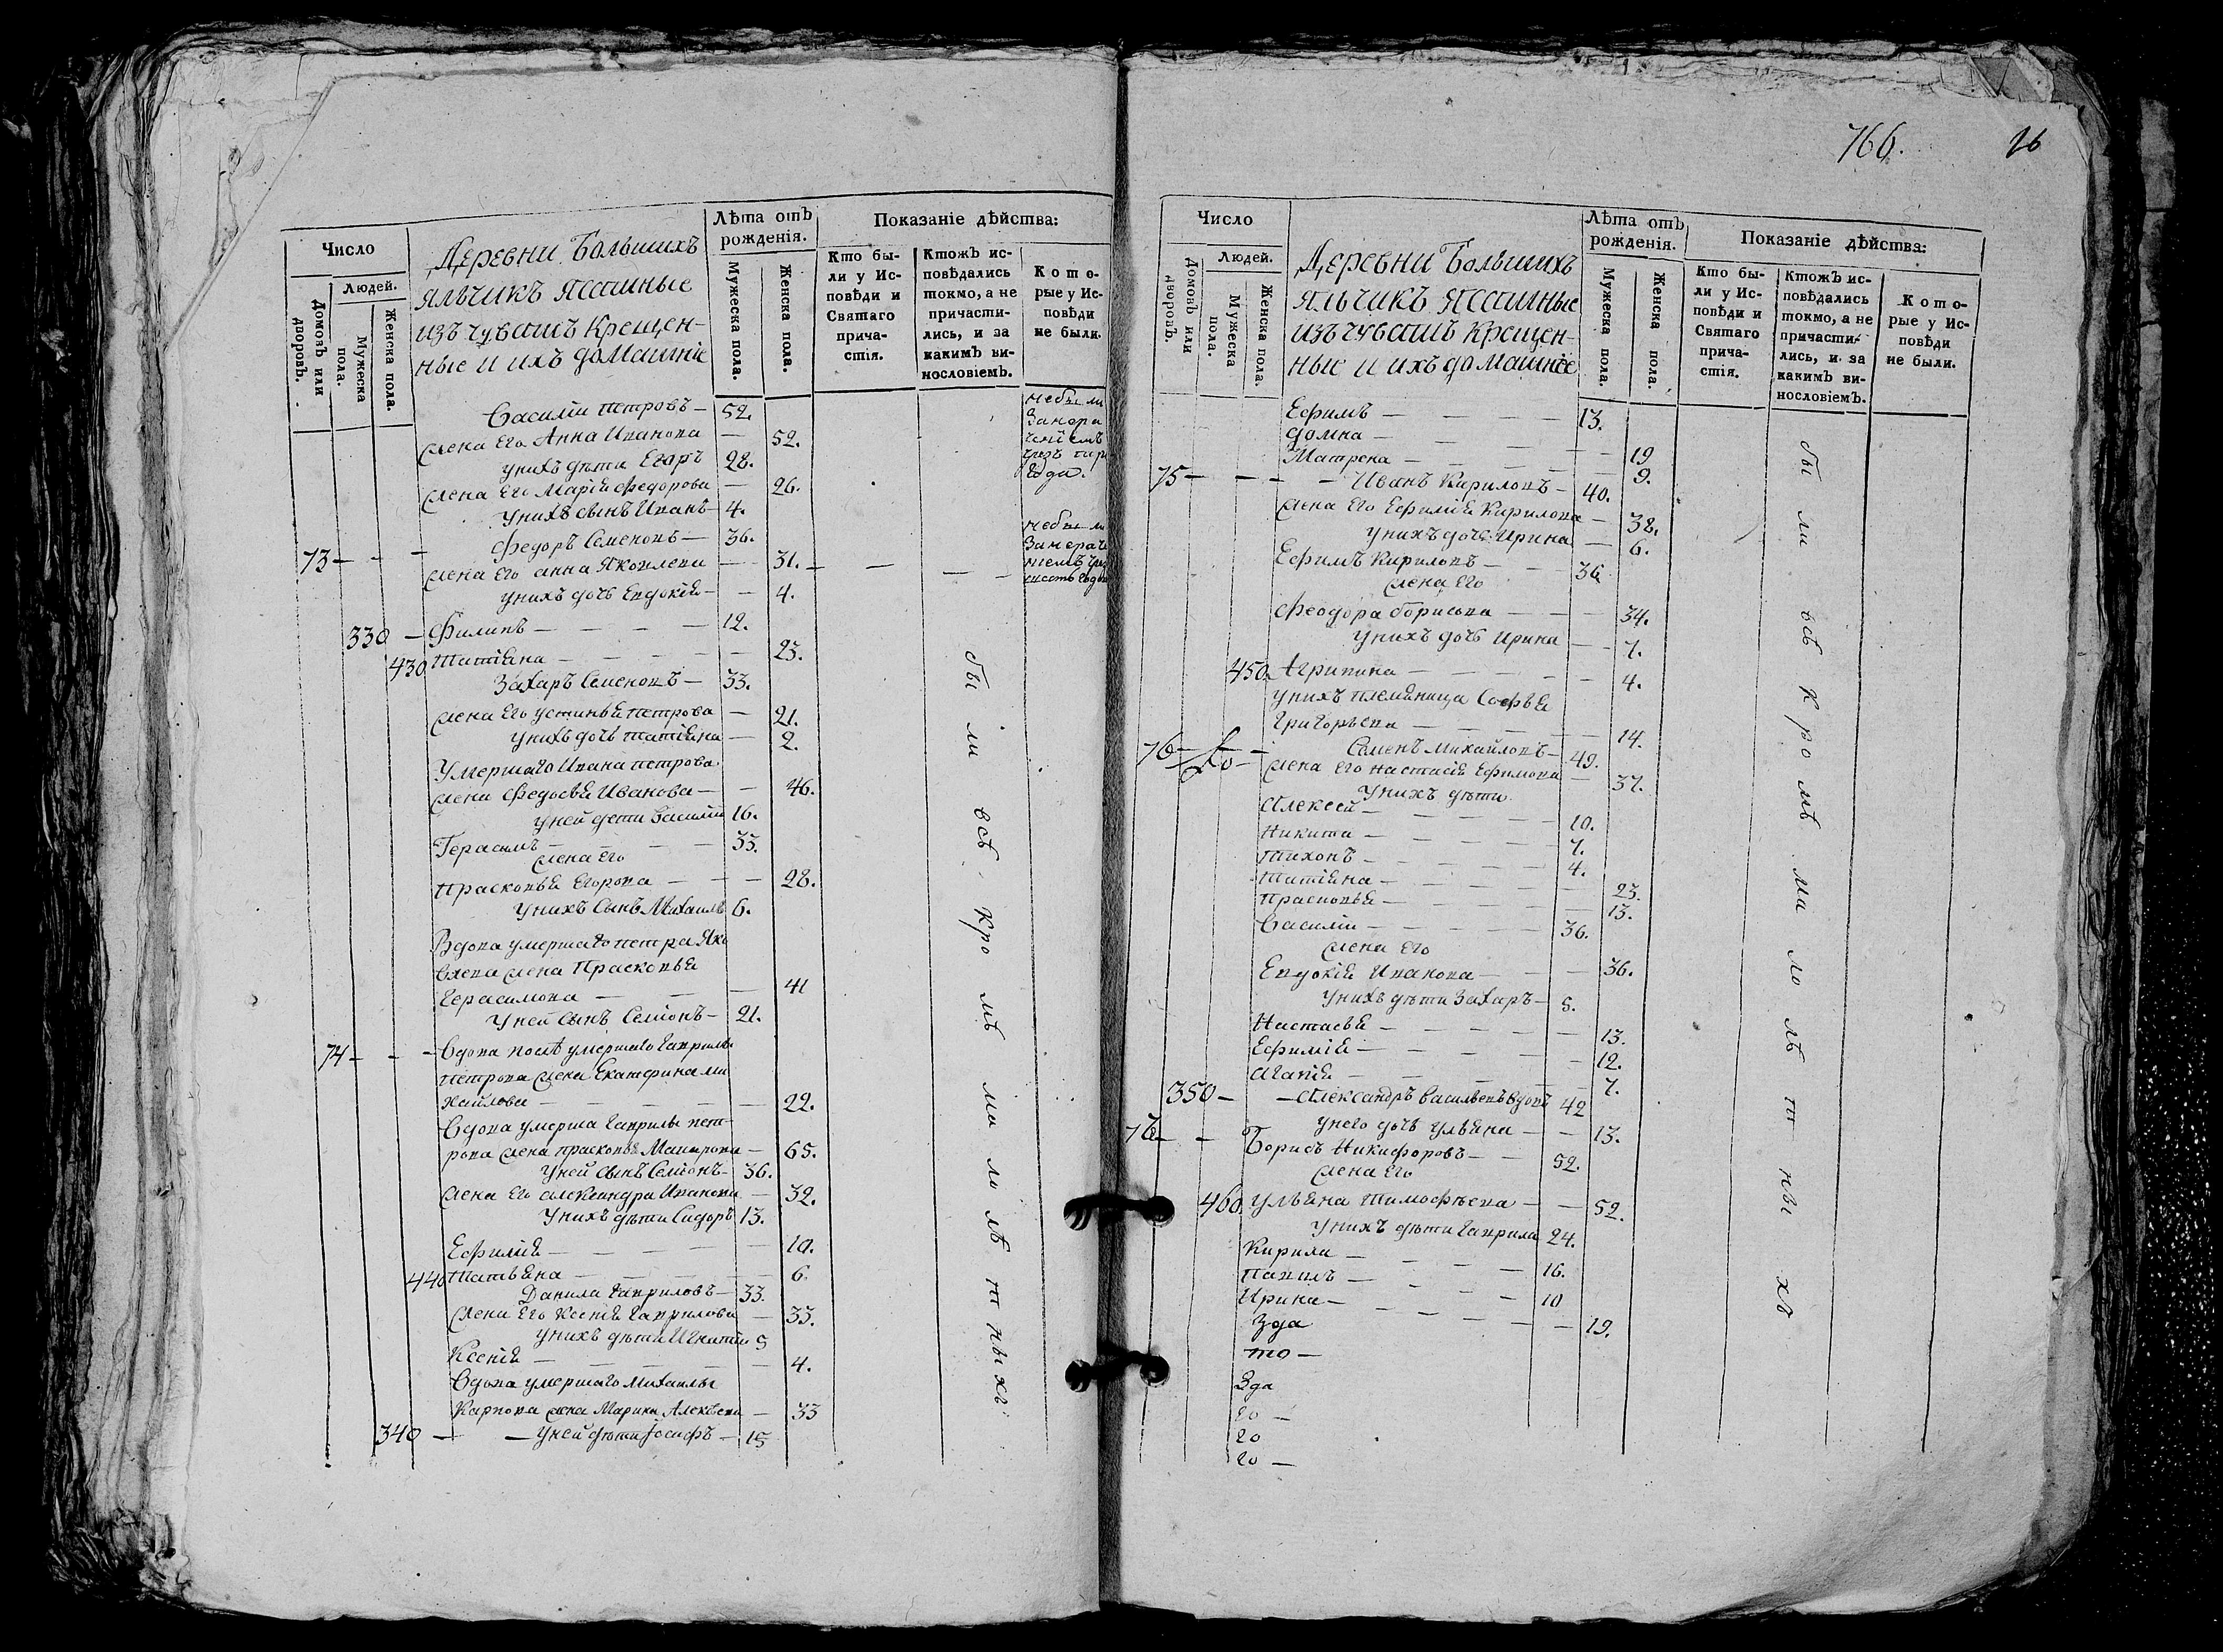 766.
76
Число
Людей.
Домовъ или дворовъ.
Мужеска пола.
Женска пола.
Деревни Большихъ
Яльчикъ Ясашные
изъ чувашъ крещен-
ные и ихъ домашніе
Лѣта отъ рожденія.
Мужеска пола.
Женска пола.
Показаніе дѣйства:
Кто бы-
ли у Ис-
повѣди и
Святаго
прича-
стія.
Ктожъ ис-
повѣдались
токмо, а не
причасти-
лись, и за
какимъ ви-
нословіемъ.
Кото-
рые у Ис-
повѣди
не были.
Василій Петровъ — 52.
жена Его Анна Иванова — 52.
унихъ дѣти Егоръ 28.
жена Его Марія Федорова — 26.
унихъ сынъ Иванъ — 4.
небыли
года.
73 — — — Федоръ Семеновъ — 36.
жена Его Анна Яковлева — 31. — — — —
небыли
унихъ дочь Евдокія — — 4.
330 — Филипъ — — — — 12.
430 Татіяна — — — — 23.
Захаръ Семеновъ — 33.
жена Его Устинья Петрова — 21.
унихъ дочь Татіяна — 2.
Умершаго Ивана Петрова
жена Федосья Иванова — — 46.
уней дети Василій 16.
Герасимъ — — — — 33.
жена Его
Прасковья Егорова — — — 28.
унихъ Сынъ Михаилъ 6.
Вдова умершаго Петра Яко
влева жена Прасковья
Герасимова — — — 41
уней Сынъ Семіонъ — 21.
74 — — — Вдова послѣ умершаго Гаврилы
Петрова жена Екатерина Ми
хайлова — — — — — 22.
Вдова умерша Гаврилы Пет
рова жена Прасковья — 65.
Уней сынъ Семіонъ — 36.
жена Его Александра Иванова — 32.
Унихъ дѣти Сидоръ 13.
Ефимія — — — — 10.
440 Татьяна — — — — 6.
Данила Гавриловъ — 33.
жена Его Ксенія Гаврилова — 33.
унихъ дѣти Игнатій 5
Ксенія — — — — 4.
Вдова умершаго Михаилы
Карпова жена Марина Алексѣева — 33
340 — — уней дѣти Іосифъ — 15
бы ли всѣ кро мѣ ма ло лѣ т ны хъ
Число
Людей.
Домовъ или дворовъ.
Мужеска пола.
Женска пола.
Деревни Большихъ
Яльчикъ Ясашные
изъ чувашъ крещен-
ные и ихъ домашніе
Лѣта отъ рожденія.
Мужеска пола.
Женска пола.
Показаніе дѣйства:
Кто бы-
ли у Ис-
повѣди и
Святаго
прича-
стія.
Ктожъ ис-
повѣдались
токмо, а не
причасти-
лись, и за
какимъ ви-
нословіемъ.
Кото-
рые у Ис-
повѣди
не были.
Ефимъ — — — — 13.
Домна — — — — 19
Матрена — — — — 9.
75 — — — — Иванъ Кириловъ — 40.
жена Его Ефимія Кирилова — 38.
унихъ дочь Ирина — 6.
Ефимъ Кириловъ — — 36
жена Его
Феодора Борисова — — — 34.
унихъ дочь Ирина — — 7.
450. Агрипина — — — — 4.
унихъ племяница Софья
Григорьева — — — 14.
76 — — Семенъ Михайловъ — 49.
жена Его Настасія Ефимова — 37.
Унихъ дѣти
Алексей — — — — 10.
Никита — — — — 7.
Тихонъ — — — — 4.
Татіяна — — — — 23.
Прасковья — — — — 13.
Василій — — — — 36.
жена Его
Евдокія Иванова — — — 36.
унихъ дѣти Захаръ — 5.
Настасья — — — — 13.
Ефимія — — — — 12.
Агапія — — — — 7.
350 — — Александръ Васильевъ вдовъ 42
унего дочь Ульяна — — 13.
76 — — Борисъ Никифоровъ — — 52.
жена Его
460. Ульяна Тимофѣева — — 52.
унихъ дѣти Гаврила 24.
Кирила — — — — 16.
Павилъ — — — — 10
Ирина — — — — 19.
Зда
то —
Зда
го —
го
го —
бы ли всѣ к ро мѣ ма ло лѣ т ны хъ